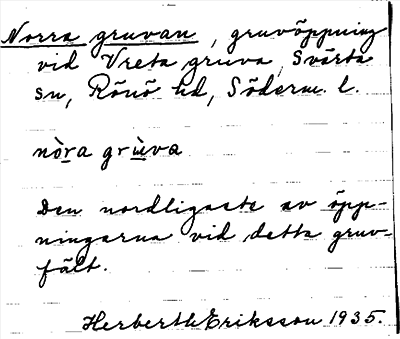 Norra gruvan, gruvöppning
vid Vreta gruva, Svärta
sn, Rönö hd, Söderm. l.
nòra grùva
Den nordligaste av öpp-
ningarna vid detta gruv-
fält.
Herberth Eriksson 1935.